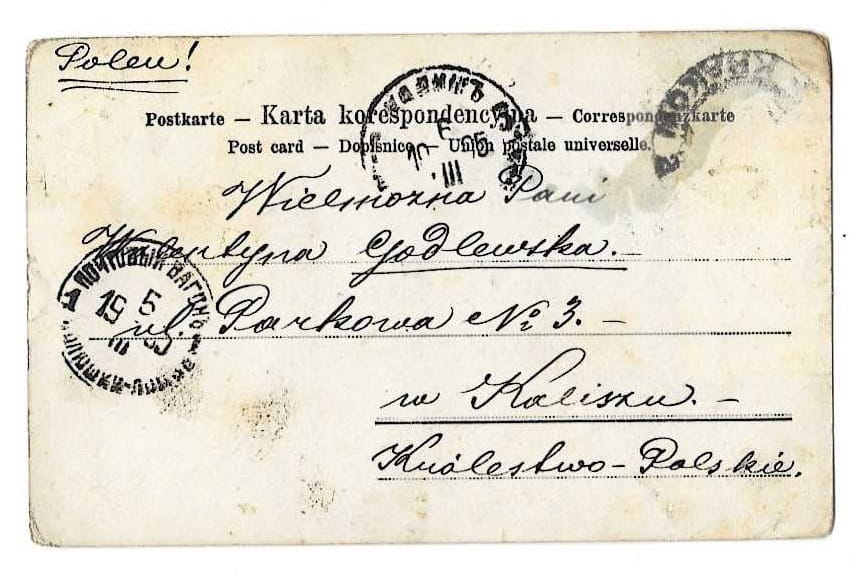 Polen!
Postkarte — Karta korespondencyjna — Correspondenzkarte
Post card — Dopisnice — Union postale universelle.
Wielmożna Pani
Walentyna Godlewska.—
ul. Parkowa № 3.—
w Kaliszu.—
Królestwo-Polskie.
ПОЧТОВЫЙ ВАГОНЪ
5
19
III
КАЛИШЪ
6
05
III